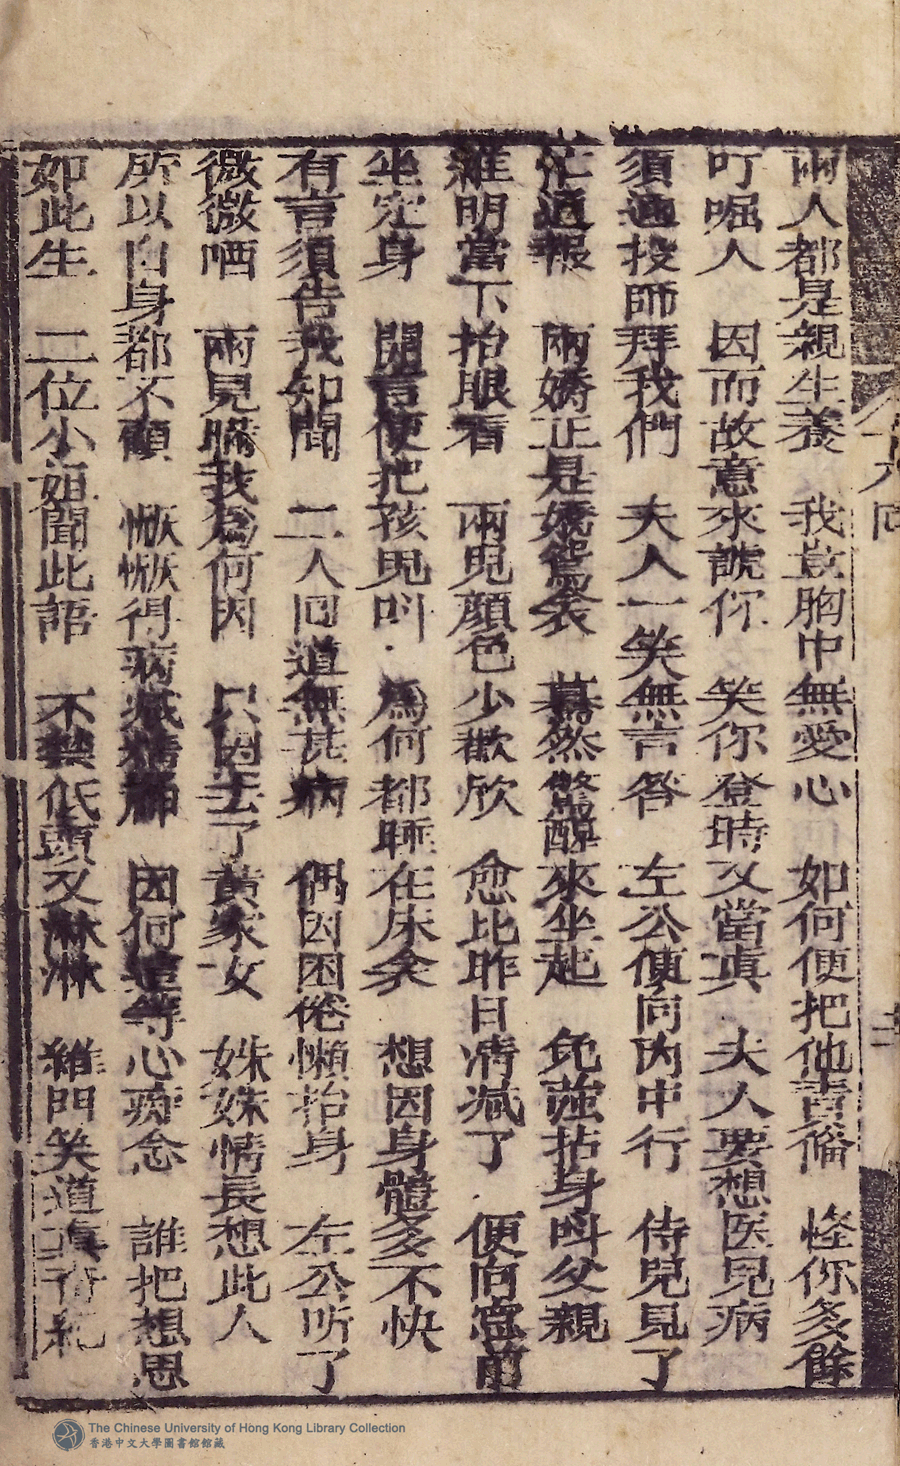 兩人都是親生養　我豈胸中無愛心　如何便把他責備　怪你多餘
叮囑人　因而故意來謊你　笑你登時又當真　夫人要想医兒病
須通投師拜我們　夫人一笑無言答　左公便向內中行　侍兒見了
忙通報　兩嬌正是嬌鴛衣　驀然驚醒來坐起　免強拈身呌父親
維明當下抬眼看　兩兒顔色少歡欣　愈比昨日凊减了　便向窓前
坐定身　開言便把孩兒呌　為何都睡在床矣　想因身體多不快
有言須告我知聞　二人囘道無甚病　偶因困倦懶抬身　左公听了
微微哂　兩兒瞞我為何因　只因去了黃家女　姝姝情長想此人
所以自身都不顧　懨懨得病減精神　因何這等心痴念　誰把想思
如此生　二位小姐聞此語　不禁低頭又淋淋　維門笑道真奇
八回
The Chinese University of Hong Kong Library Collection
香港中文大學圖書館館藏